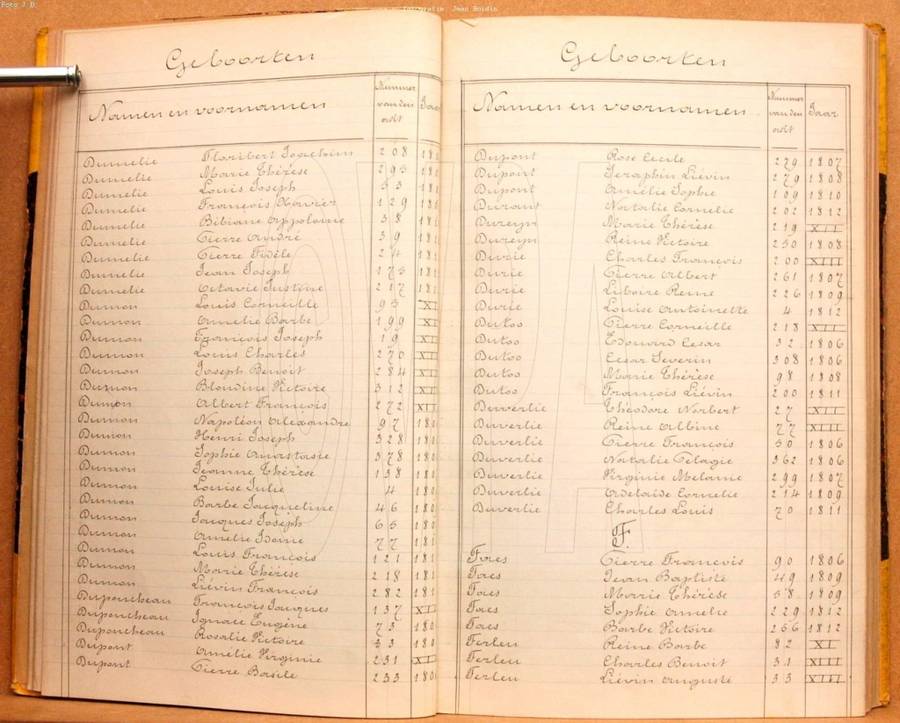 Foto J.D.
Jean Boidin
Geboorten
Namen en voornamen Nummer van den acht Jaar
Dumelie Floribert Joachim 208 18
Dumelie Marie Thérèse 295 18
Dumelie Louis Joseph 53 18
Dumelie François Xavier 129 18
Dumelie Bibiane Appoloine 38 18
Dumelie Pierre André 39 18
Dumelie Pierre Fidèle 24 18
Dumelie Jean Joseph 175 18
Dumelie Octavie Justine 217 18
Dumon Louis Corneille 95 XI
Dumon Amelie Barbe 199 XI
Dumon François Joseph 19 XI
Dumon Louis Charles 270 XI
Dumon Joseph Benoit 284 XI
Dumon Blondine Victoire 312 XI
Dumon Albert François 272 XII
Dumon Napoléon Alexandre 97 180
Dumon Henri Joseph 328 180
Dumon Sophie Anastasie 378 180
Dumon Jeanne Thérèse 138 180
Dumon Louise Julie 4 180
Dumon Barbe Jacqueline 46 180
Dumon Jacques Joseph 65 18
Dumon Amelie 77 181
Dumon Louis François 121 181
Dumon Marie Thérèse 218 181
Dumon Liévin François 282 181
Duponcheau François Jacques 137 XI
Duponcheau Ignace Eugène 73 180
Duponcheau Rosalie Victoire 53 180
Dupont Amélie Virginie 231 XI
Dupont Pierre Basile 233 180
Geboorten
Namen en voornamen Nummer van den acht Jaar
Dupont Rose Cecile 229 1807
Dupont Seraphin Liévin 279 1808
Dupont Amélie Sophie 109 1810
Durant Natalie Cornelie 202 1812
Dureyn Marie Thérèse 219 XII
Dureyn Reine Victoire 250 1808
Durie Charles François 200 XIII
Durie Pierre Albert 261 1807
Durie Liboire Reine 226 1809
Durie Louise Antoinette 4 1812
Dutoo Pierre Corneille 218 XII
Dutoo Edouard Cesar 32 1806
Dutoo Cesar Severin 308 1806
Dutoo Marie Thérèse 98 1808
Dutoo François Liévin 200 1811
Duverlie Théodore Norbert 27 XII
Duverlie Reine Albine 77 XIII
Duverlie Pierre François 50 1806
Duverlie Natalie Pélagie 362 1806
Duverlie Virginie Melanie 299 1807
Duverlie Adelaïde Cornelie 214 1809
Duverlie Charles Louis 70 1811
F.
Faes Pierre François 90 1806
Faes Jean Baptiste 49 1809
Faes Marrie Thérèse 58 1809
Faes Sophie Amelie 229 1812
Faes Barbe Victoire 256 1812
Ferleu Reine Barbe 82 XI
Ferleu Charles Benoit 31 XIII
Ferleu Liévin Auguste 33 XIII